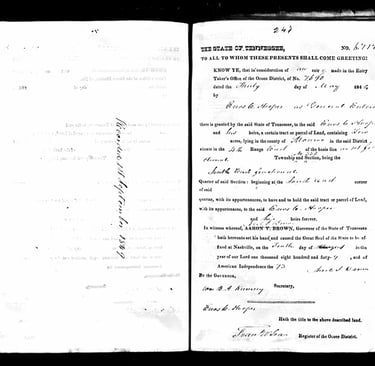 Recorded 1st September 1849
247
THE STATE OF TENNESSEE, NO.
TO ALL TO WHOM THESE PRESENTS SHALL COME GREETING:
KNOW YE, that in consideration of an entry made in the Entry
Taker's Office of the Ocoee District, of No. 7690
dated the day of May 184
by Enos C. Hooper as General Enterer
there is granted by the said State of Tennessee, to the said Enos C. Hooper
and his heirs, a certain tract or parcel of Land, containing
acres, lying in the county of Monroe in the said District,
shown in the 4th Range East of the basis line
Township and Section, being the
South West fractional
Quarter of said Section: beginning at the South west corner
of said
quarter, with its appurtenances, to have and to hold the said tract or parcel of Land,
with its appurtenances, to the said Enos C. Hooper
and his heirs forever.
In witness whereof, AARON V. BROWN, Governor of the State of Tennessee
hath hereunto set his hand and caused the Great Seal of the State to be af-
fixed at Nashville, on the Tenth day of August in the
year of our Lord one thousand eight hundred and forty-9 and of
American Independence the 73
By the Governor,
Secretary,
Enos C. Hooper
Hath the title to the above described land.
Register of the Ocoee District.